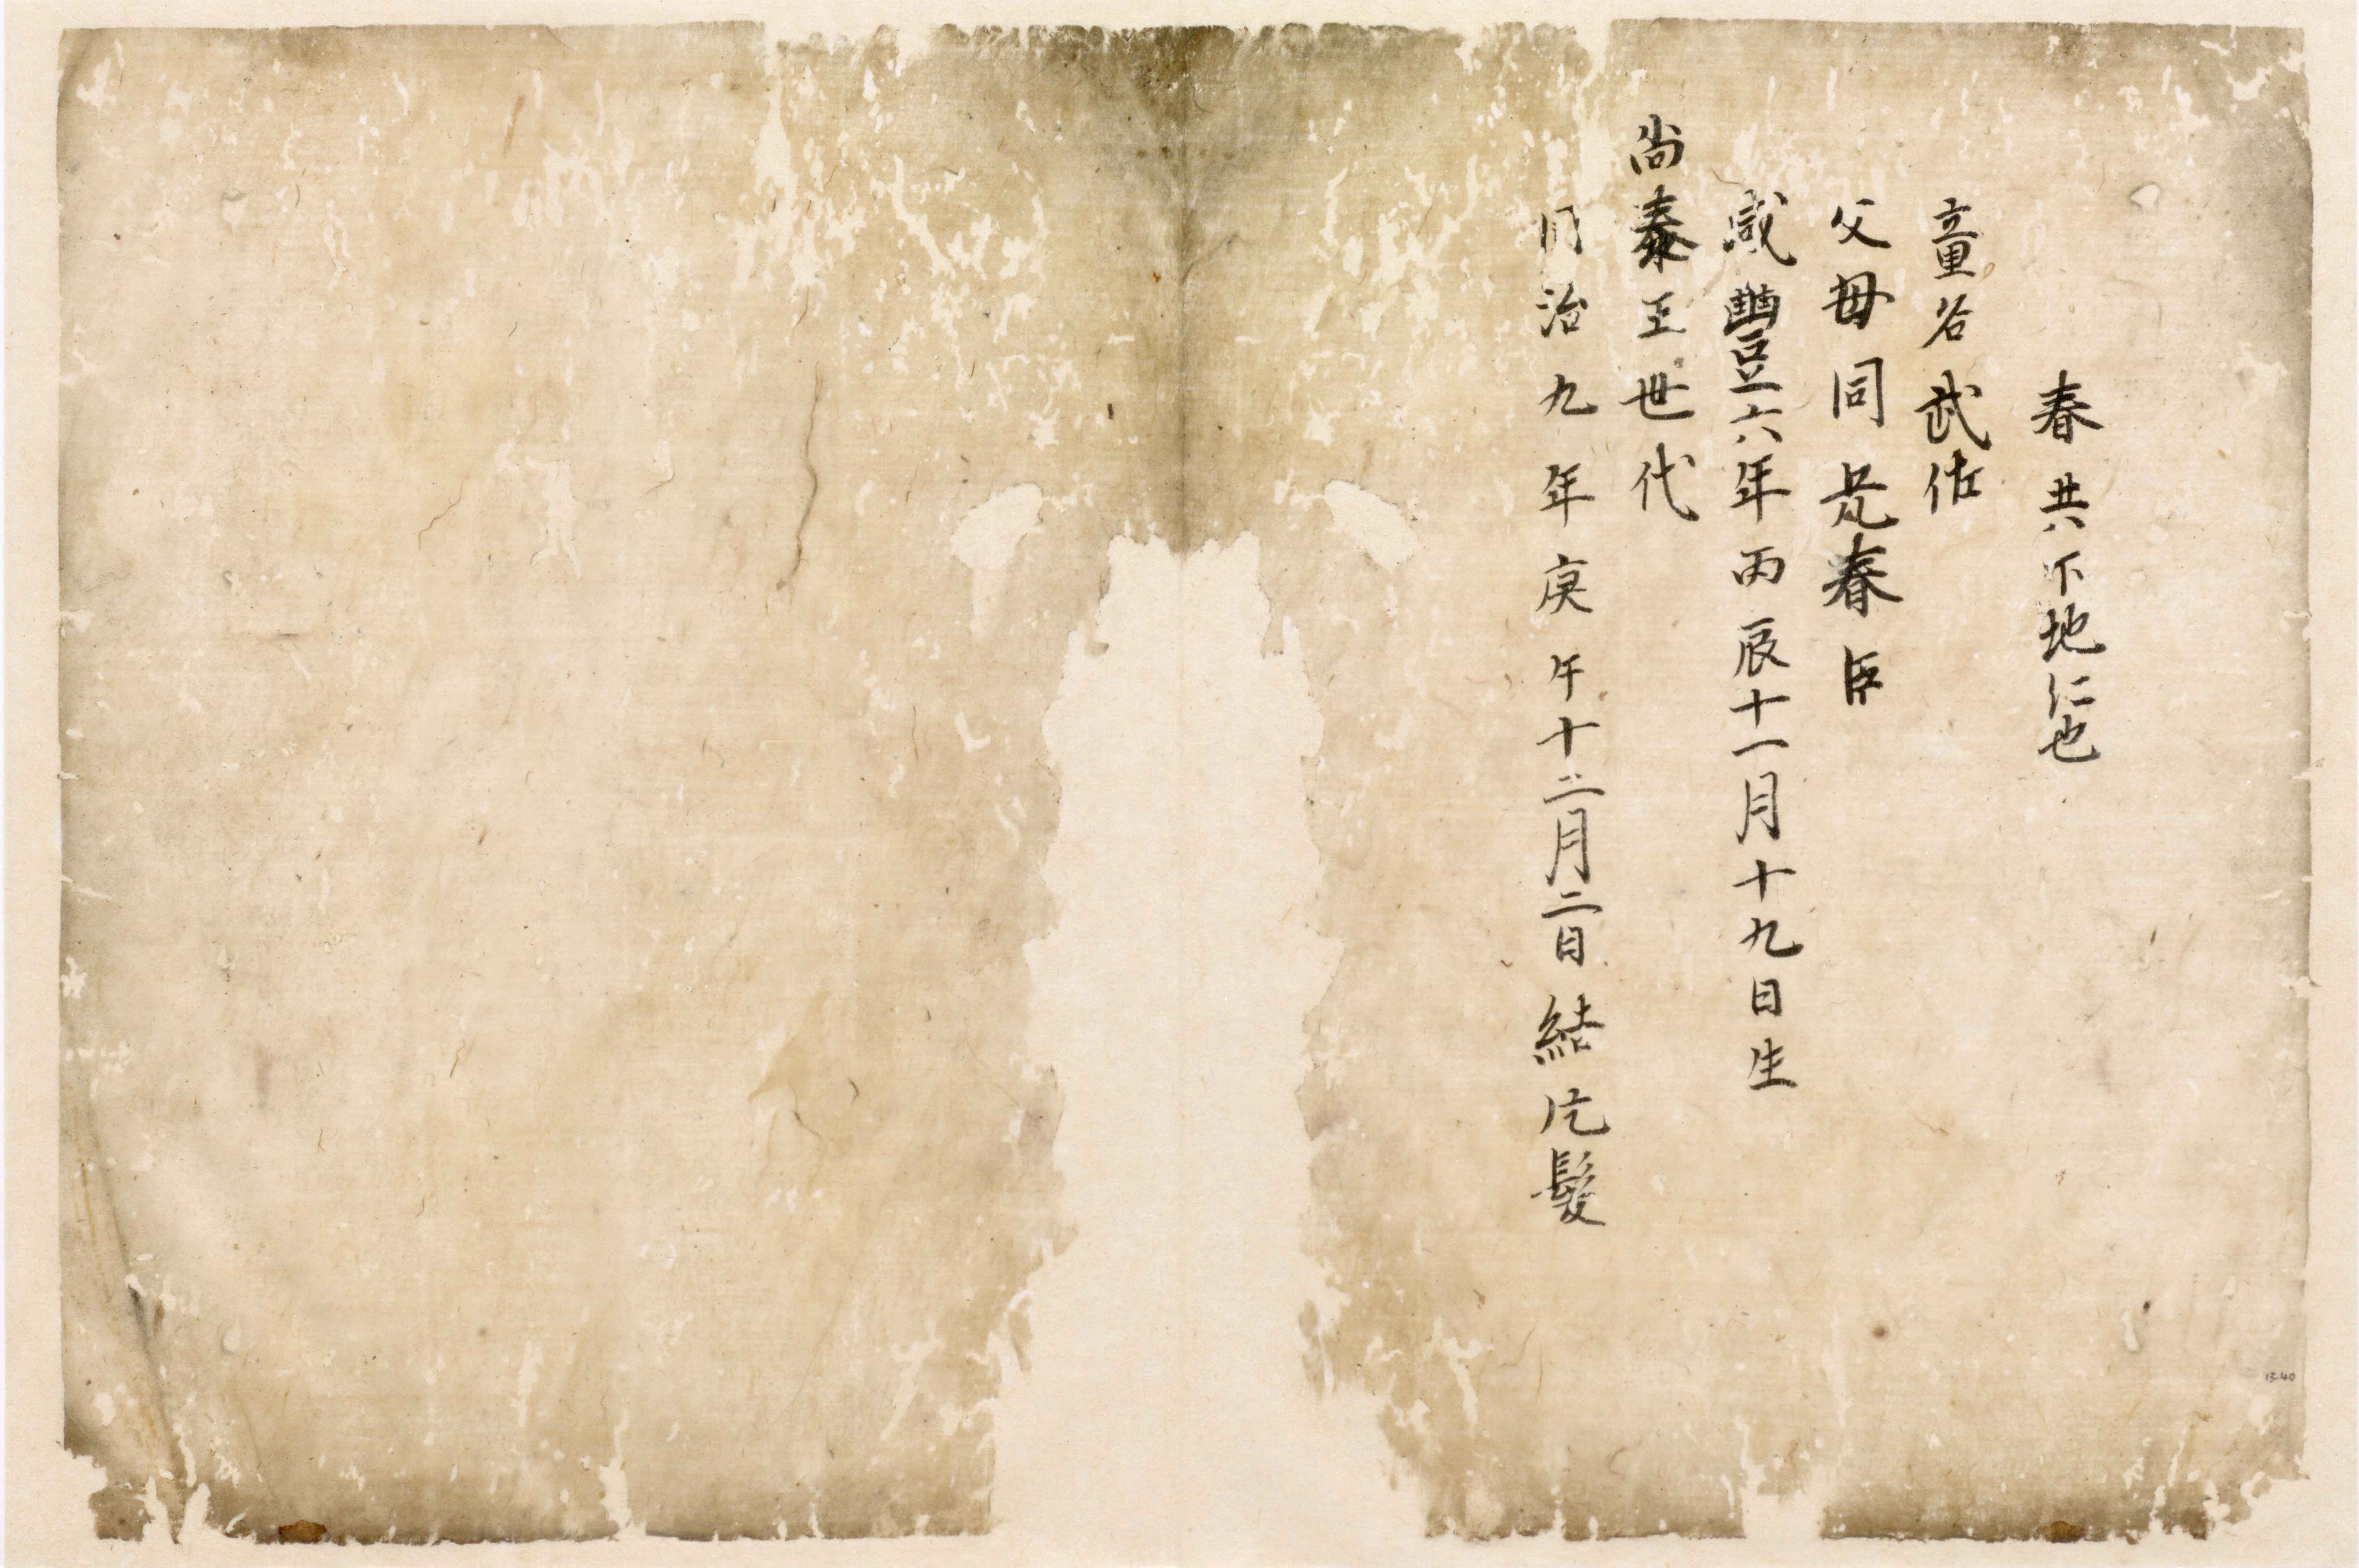 春共不地仁也
童名武佐
父母同𠒇春臣
咸豐六年丙辰十一月十九日生
尚泰王世代
同治九年庚午十二月二日結片髮
13-40